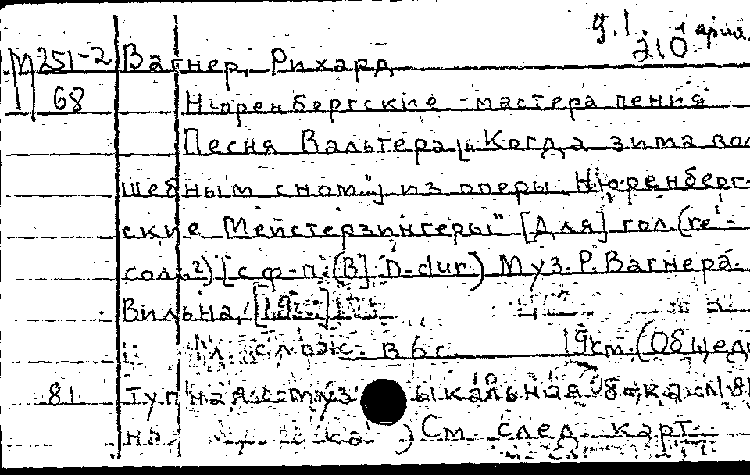 д.1. 1 ария.
210
М 251-2 Вагнер, Рихард
68 Нюренбергские мастера пения
Песня Вальтера [„Когда зима вол
шебным сном"] из оперы „Нюренберг-
ские Мейстерзингеры" [Для] гол. (re¹-
сол²) [с ф-п. (В] D-dur.) Муз. Р. Вагнера.
Вильна, [19
л. слож. в 6 с. 19 см. (Общедо
81 тупная музыкальная
) См. след. карт.